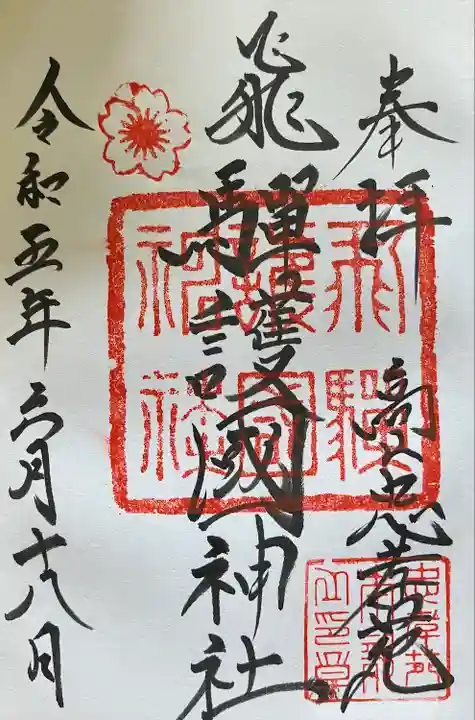 奉拝 高山忠孝苑
飛驒護國神社
飛驒護國神社
令和五年六月十八日